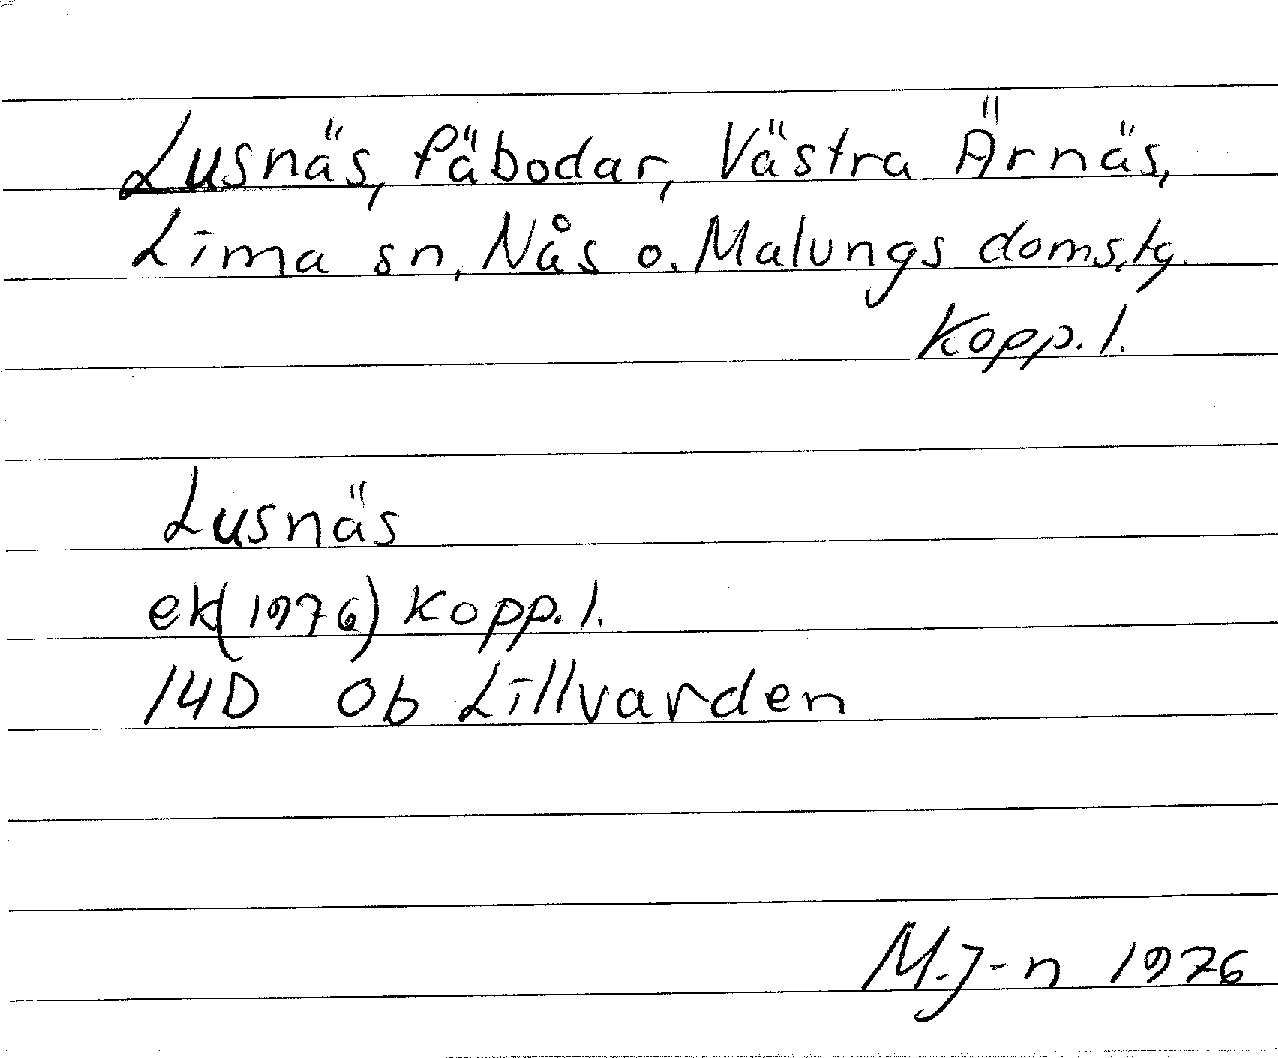 Lusnäs, fäbodar, Västra Ärnäs,
Lima sn, Nås o. Malungs doms.tg.
Kopp. l.
Lusnäs
ek(1976) Kopp. l.
14D 0b Lillvarden
M.J-n 1976